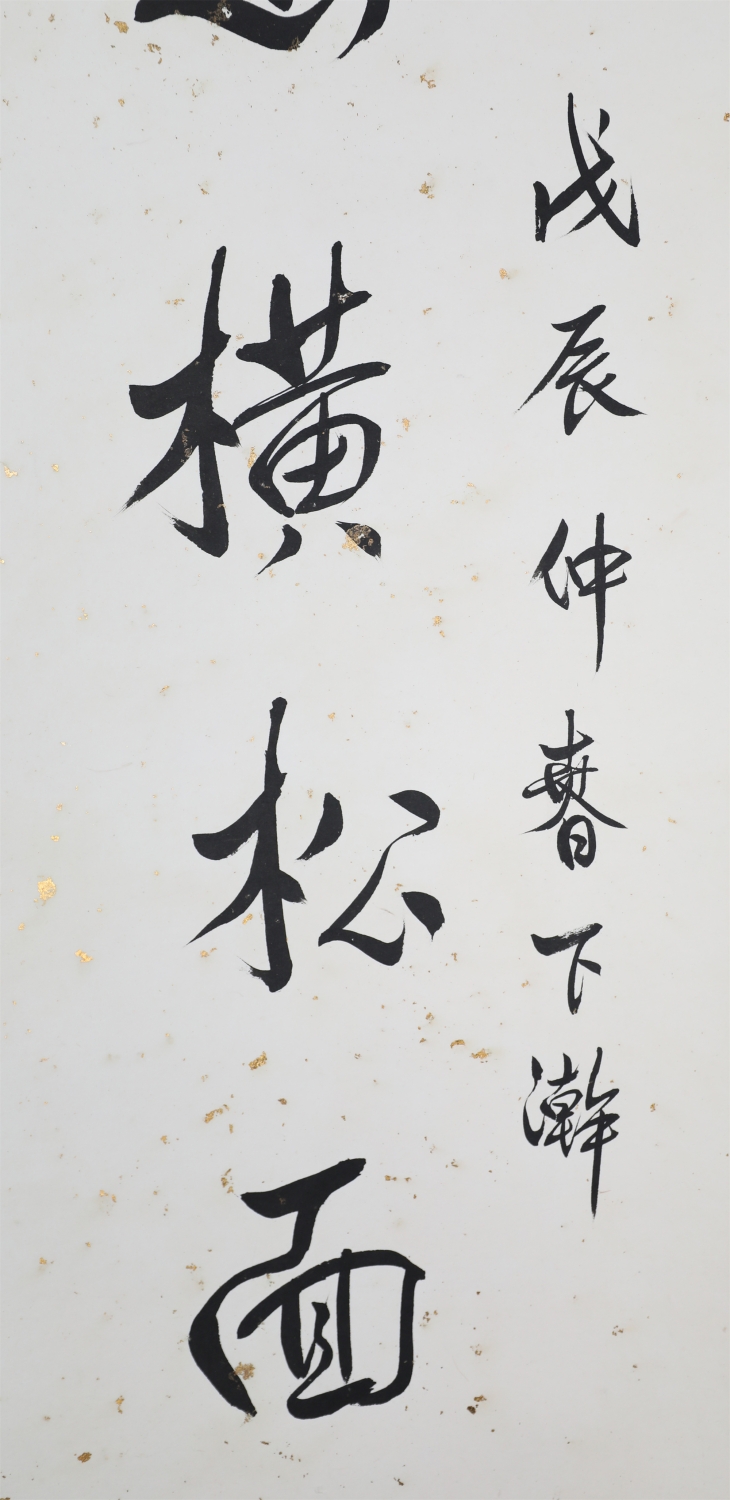 戊辰仲春下澣
橫松面